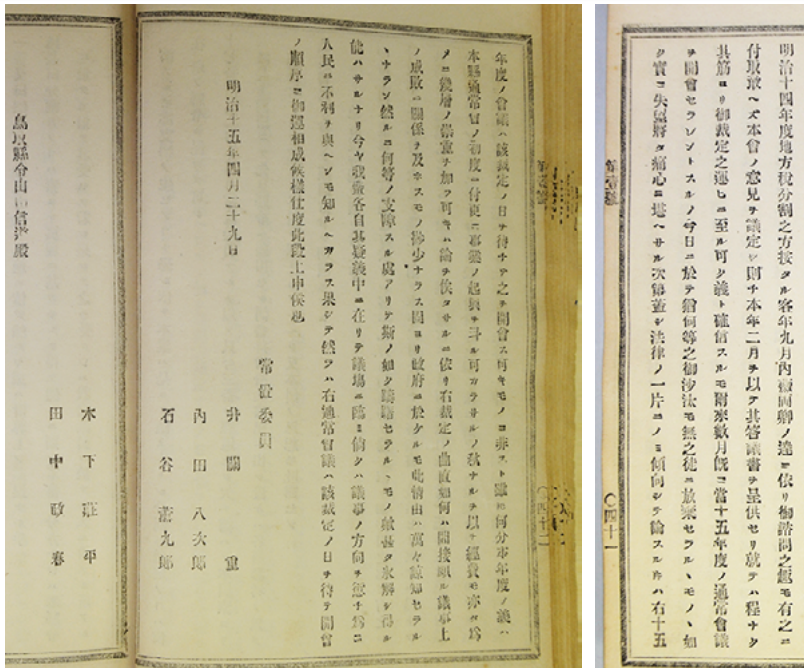 明治十四年度地方税分割之方按タル客年九月内務兩卿ノ達ニ依リ御諮問之趣モ有之ニ
付取敢ヘズ本會ノ意見ヲ議定シ則チ本年二月ヲ以テ其答議書ヲ呈供セリ就テハ程ナク
其筋ヨリ御裁定之運ビニ至ル可シ義ト確信スルモ爾來數月既ニ當十五年度ノ通常會議
ヲ開會セラレントスルノ今日ニ於テ猶何等之御沙汰モ無之徒ニ放棄セラルヽモノヽ如
ク實ニ失望將タ痛心ニ堪ヘサル次第蓋シ法律ノ一片ニノミ傾向シテ論スル時ハ右十五
〇四十一
年度ノ會議ハ該裁定ノ日ヲ待チテ之ヲ開會ス可キモノニ非スト雖モ何分本年度ノ議ハ
本縣通常會ノ初度ニ付更ニ事變ノ起ル計ル可カラサルノ秋ナルヲ以テ經費モ亦タ爲
メニ幾層ノ崇重ヲ加フ可キハ論ヲ俟タサルニ依リ右裁定ノ曲直如何ハ間接願ル議事上
ノ成敗ニ關係ヲ及ホスモノ鮮少ナラス固ヨリ政府ニ於ケルモ此情由ハ萬々諒知セラル
ヽナラン然ルニ何等ノ支障スル處アリテ斯ノ如ク躊躇セラルヽモノ歟甚タ氷解シ得ル
能ハサルナリ今ヤ我輩各自其疑義中ニ在リテ議場ニ臨ミ倘クハ議事ノ方向ヲ愆チ爲ニ
人民ニ不利ヲ與ヘンモ知ルヘカラス果シテ然ラハ右通常會議ハ該裁定ノ日ヲ待テ開會
ノ順序ニ御運相成候樣仕度此段上申候也
明治十五年四月二十九日
常置委員
井關重
内田八次郎
石谷
九郎
〇四十二
木下莊平
田中政春
鳥取縣令山田信道殿